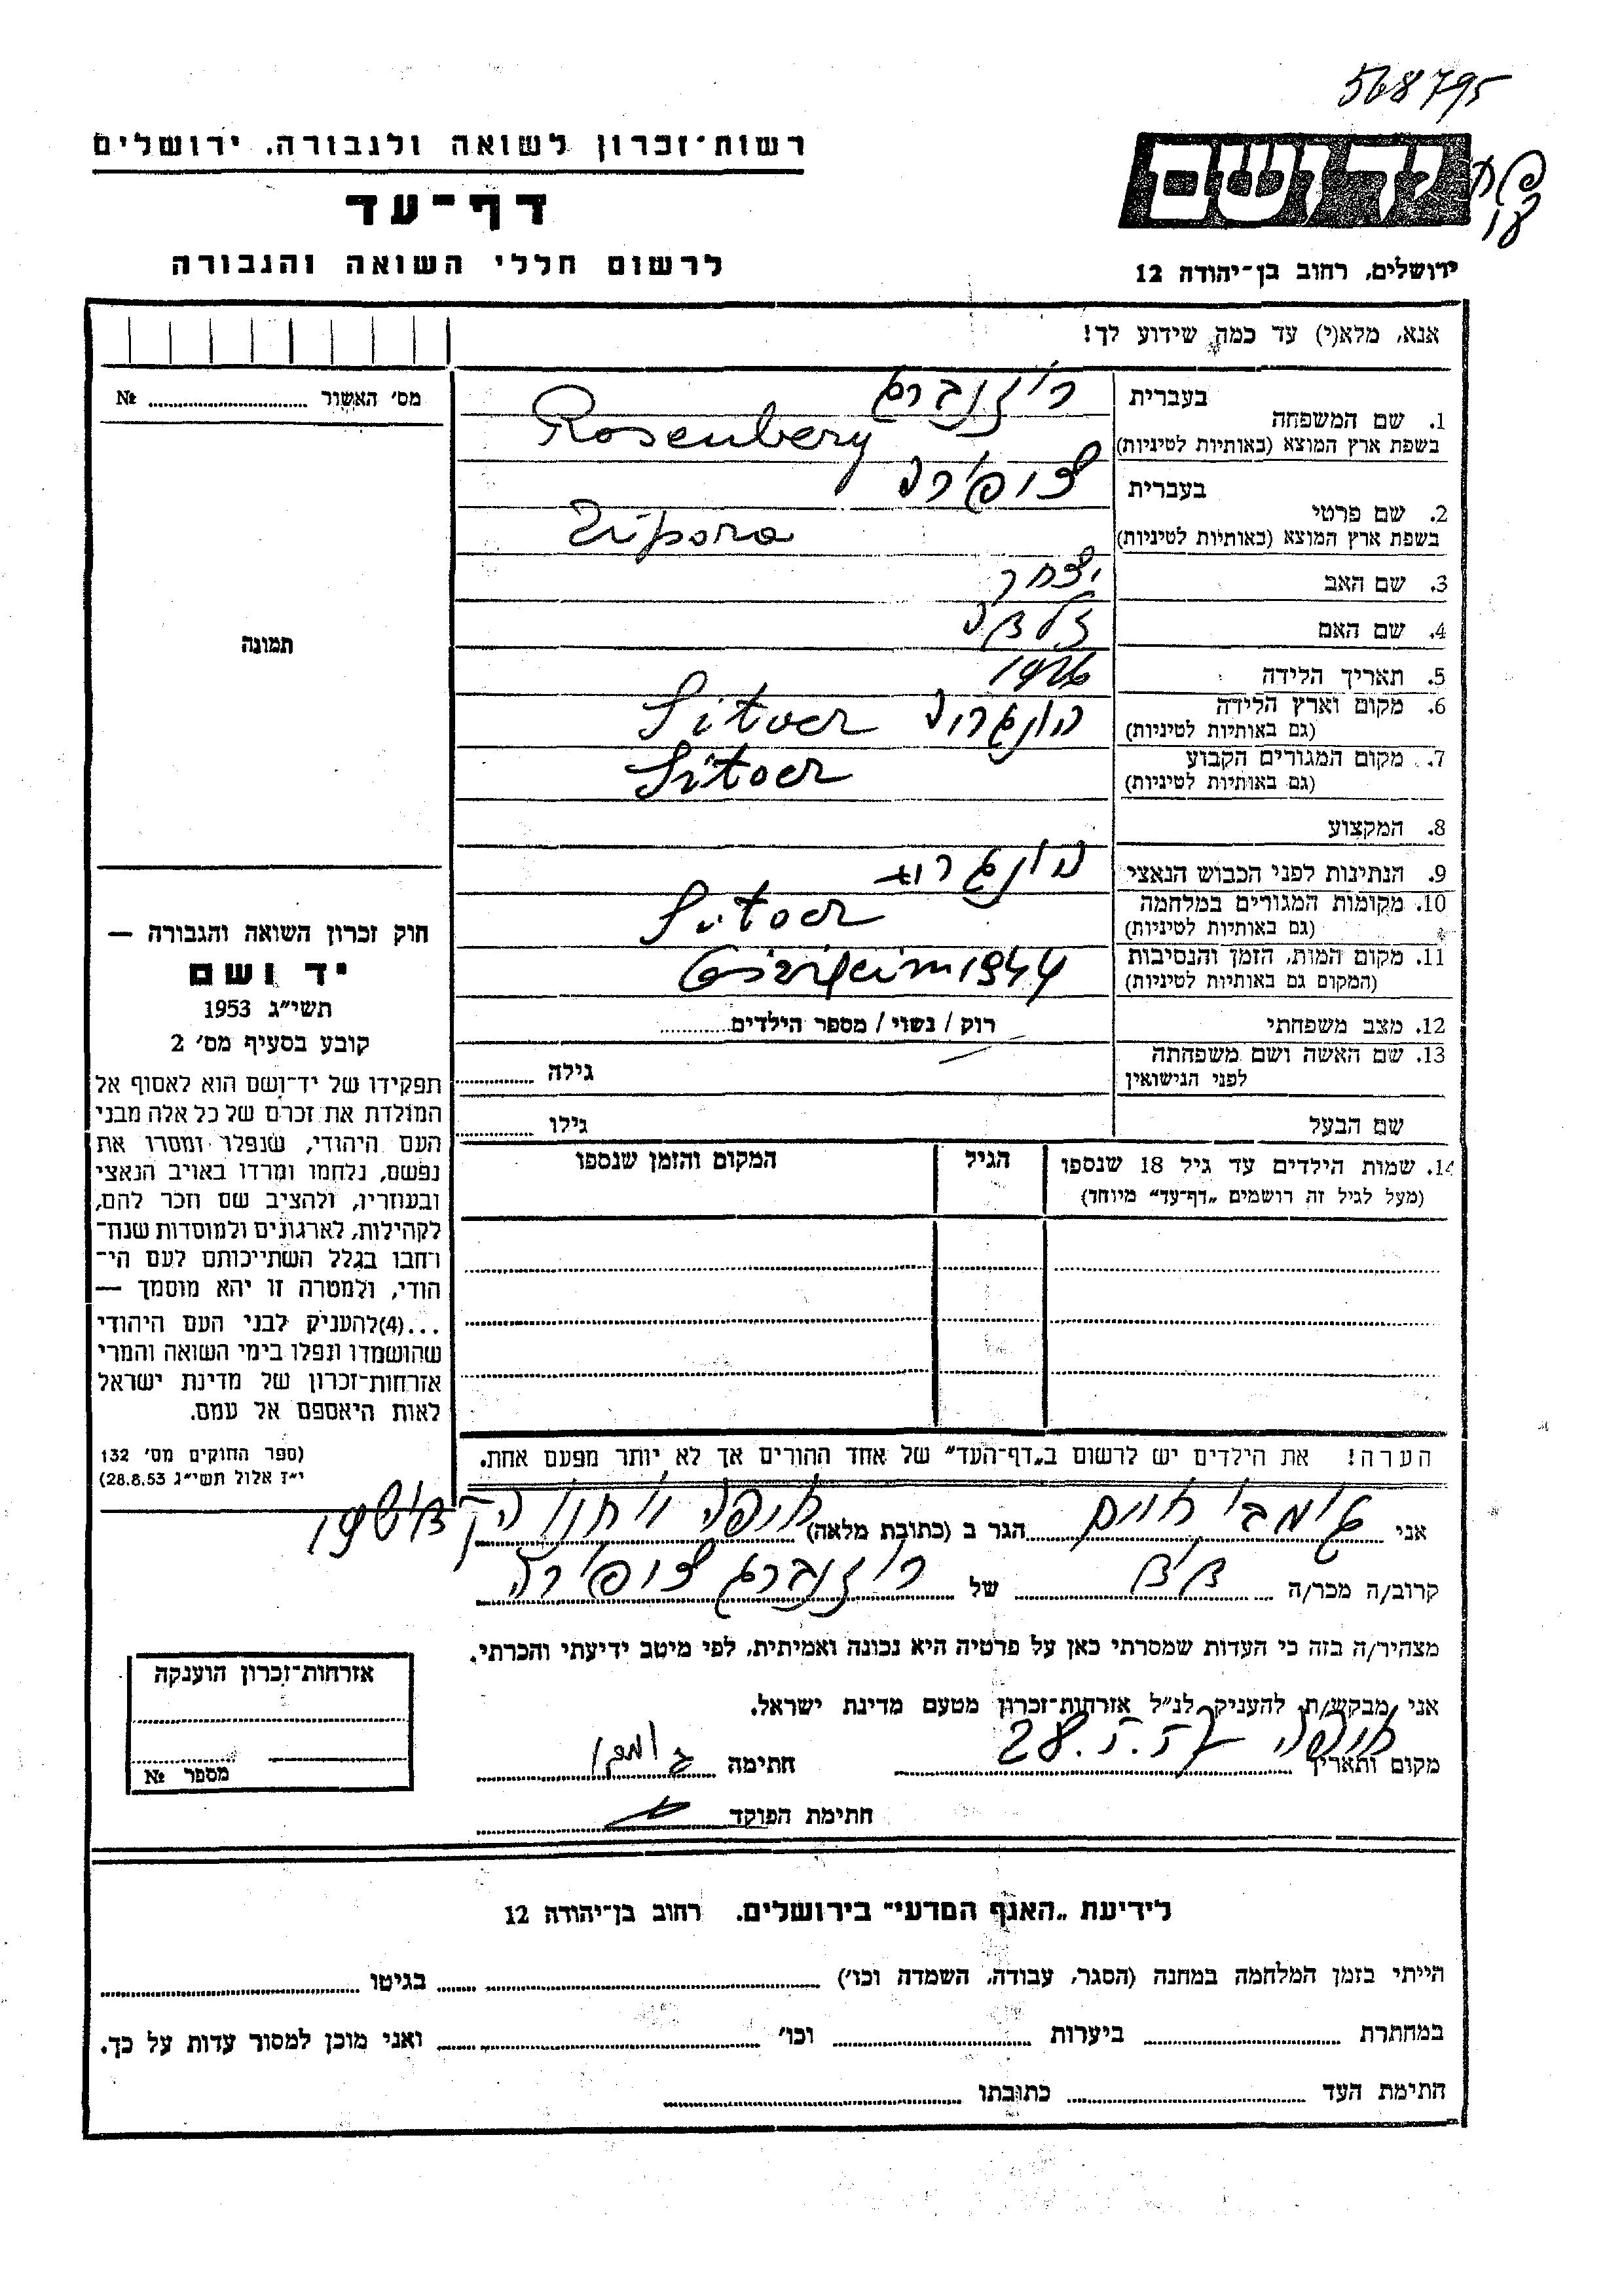 568795
רשות־זכרון לשואה ולגבורה, ירושלים
ידושם
דף־עד
לרשום חללי השואה והגבורה
ירושלים, רחוב בן־יהודה 12
אנא, מלא(י) עד כמה שידוע לך!
מס׳ האשור № 
1. שם המשפחה בעברית רוזנברג
בשפת ארץ המוצא (באותיות לטיניות) Rosenberg
2. שם פרטי בעברית צופירה
בשפת ארץ המוצא (באותיות לטיניות) Zipora
3. שם האב יצחק
4. שם האם
תמונה
5. תאריך הלידה 1926
6. מקום וארץ הלידה הונגריה Sitoer
(גם באותיות לטיניות)
7. מקום המגורים הקבוע Sitoer
(גם באותיות לטיניות)
8. המקצוע
9. הנתינות לפני הכבוש הנאצי
10. מקומות המגורים במלחמה Sitoer
(גם באותיות לטיניות)
11. מקום המות, הזמן והנסיבות 1944
(המקום גם באותיות לטיניות)
12. מצב משפחתי רוק / נשוי / מספר הילדים
13. שם האשה ושם משפחתה
לפני הנישואין גילה
שם הבעל גילו
14. שמות הילדים עד גיל 18 שנספו הגיל המקום והזמן שנספו
(מעל לגיל זה רושמים „דף־עד״ מיוחד)
חוק זכרון השואה והגבורה —
יד ושם
תשי״ג 1953
קובע בסעיף מס׳ 2
תפקידו של יד־ושם הוא לאסוף אל
המולדת את זכרם של כל אלה מבני
העם היהודי, שנפלו ומסרו את
נפשם, נלחמו ומרדו באויב הנאצי
ובעוזריו, ולהציב שם וזכר להם,
לקהילות, לארגונים ולמוסדות שנח־
רחבו בגלל השתייכותם לעם הי־
הודי, ולמטרה זו יהא מוסמך —
...(4)להעניק לבני העם היהודי
שהושמדו ונפלו בימי השואה והמרי
אזרחות־זכרון של מדינת ישראל
לאות היאספם אל עמם.
(ספר החוקים מס׳ 132
י״ז אלול תשי״ג 28.8.53)
הערה! את הילדים יש לרשום ב„דף־העד״ של אחד ההורים אך לא יותר מפעם אחת.
אני חיים הגר ב (כתובת מלאה) חיפה
קרוב/ה מכר/ה של רוזנברג צופירה
מצהיר/ה בזה כי העדות שמסרתי כאן על פרטיה היא נכונה ואמיתית, לפי מיטב ידיעתי והכרתי.
אני מבקש/ת להעניק לנ״ל אזרחות־זכרון מטעם מדינת ישראל.
מקום ותאריך חיפה 28.5.57 חתימה
חתימת הפוקד
אזרחות־זכרון הוענקה
מספר №
לידיעת „האגף המדעי״ בירושלים, רחוב בן־יהודה 12
הייתי בזמן המלחמה במחנה (הסגר, עבודה, השמדה וכו׳) בגיטו
במחתרת ביערות וכו׳ ואני מוכן למסור עדות על כך.
חתימת העד כתובתו